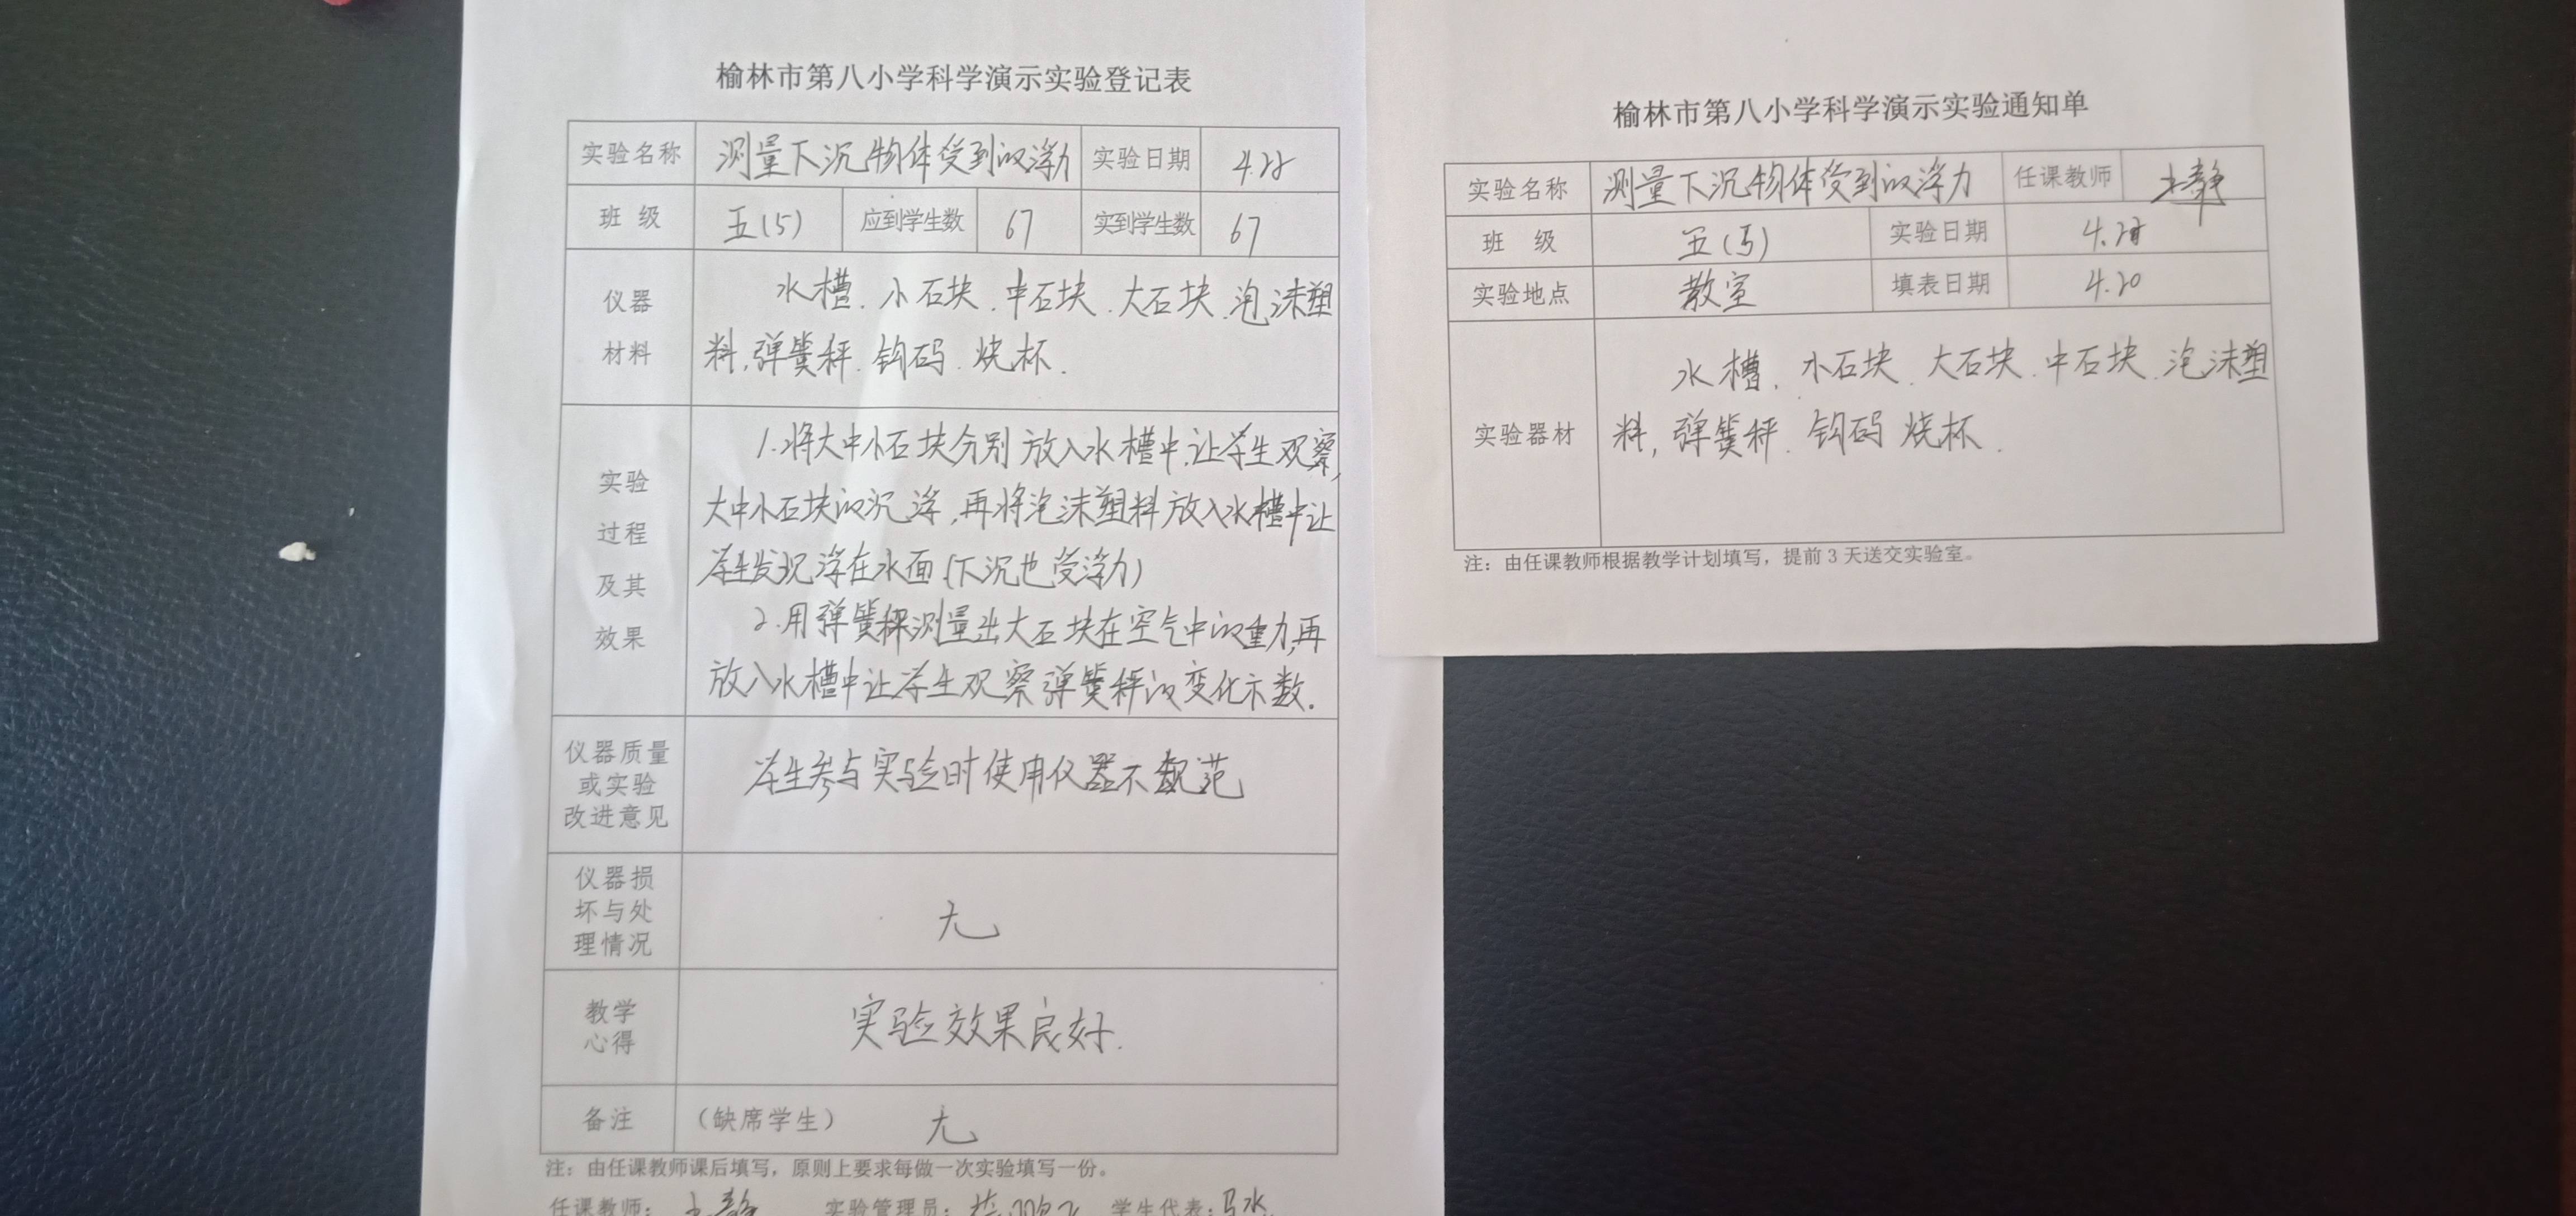 榆林市第八小学科学演示实验登记表
实验名称 测量下沉物体受到的浮力 实验日期
班 级 五(5) 应到学生数 67 实到学生数 67
仪器
材料
水槽、小石块、中石块、大石块、泡沫塑
料,弹簧秤、钩码、烧杯.
实验
过程
及其
效果
1.将大中小石块分别放入水槽中,让学生观察,
大中小石块的沉浮,再将泡沫塑料放入水槽中让
学生发现浮在水面(下沉也受浮力)
2.用弹簧秤测量出大石块在空气中的重力,再
放入水槽中让学生观察弹簧秤的变化示数.
仪器质量
或实验
改进意见
学生参与实验时使用仪器不规范
仪器损
坏与处
理情况
无
教学
心得
实验效果良好.
备注 (缺席学生) 无
注:由任课教师课后填写,原则上要求每做一次实验填写一份。
任课教师: 王静 实验管理员: 学生代表:
榆林市第八小学科学演示实验通知单
实验名称 测量下沉物体受到的浮力 任课教师 王静
班 级 五(5) 实验日期
实验地点 教室 填表日期 4.20
实验器材
水槽、小石块、大石块、中石块、泡沫塑
料,弹簧秤、钩码 烧杯.
注:由任课教师根据教学计划填写,提前3天送交实验室。